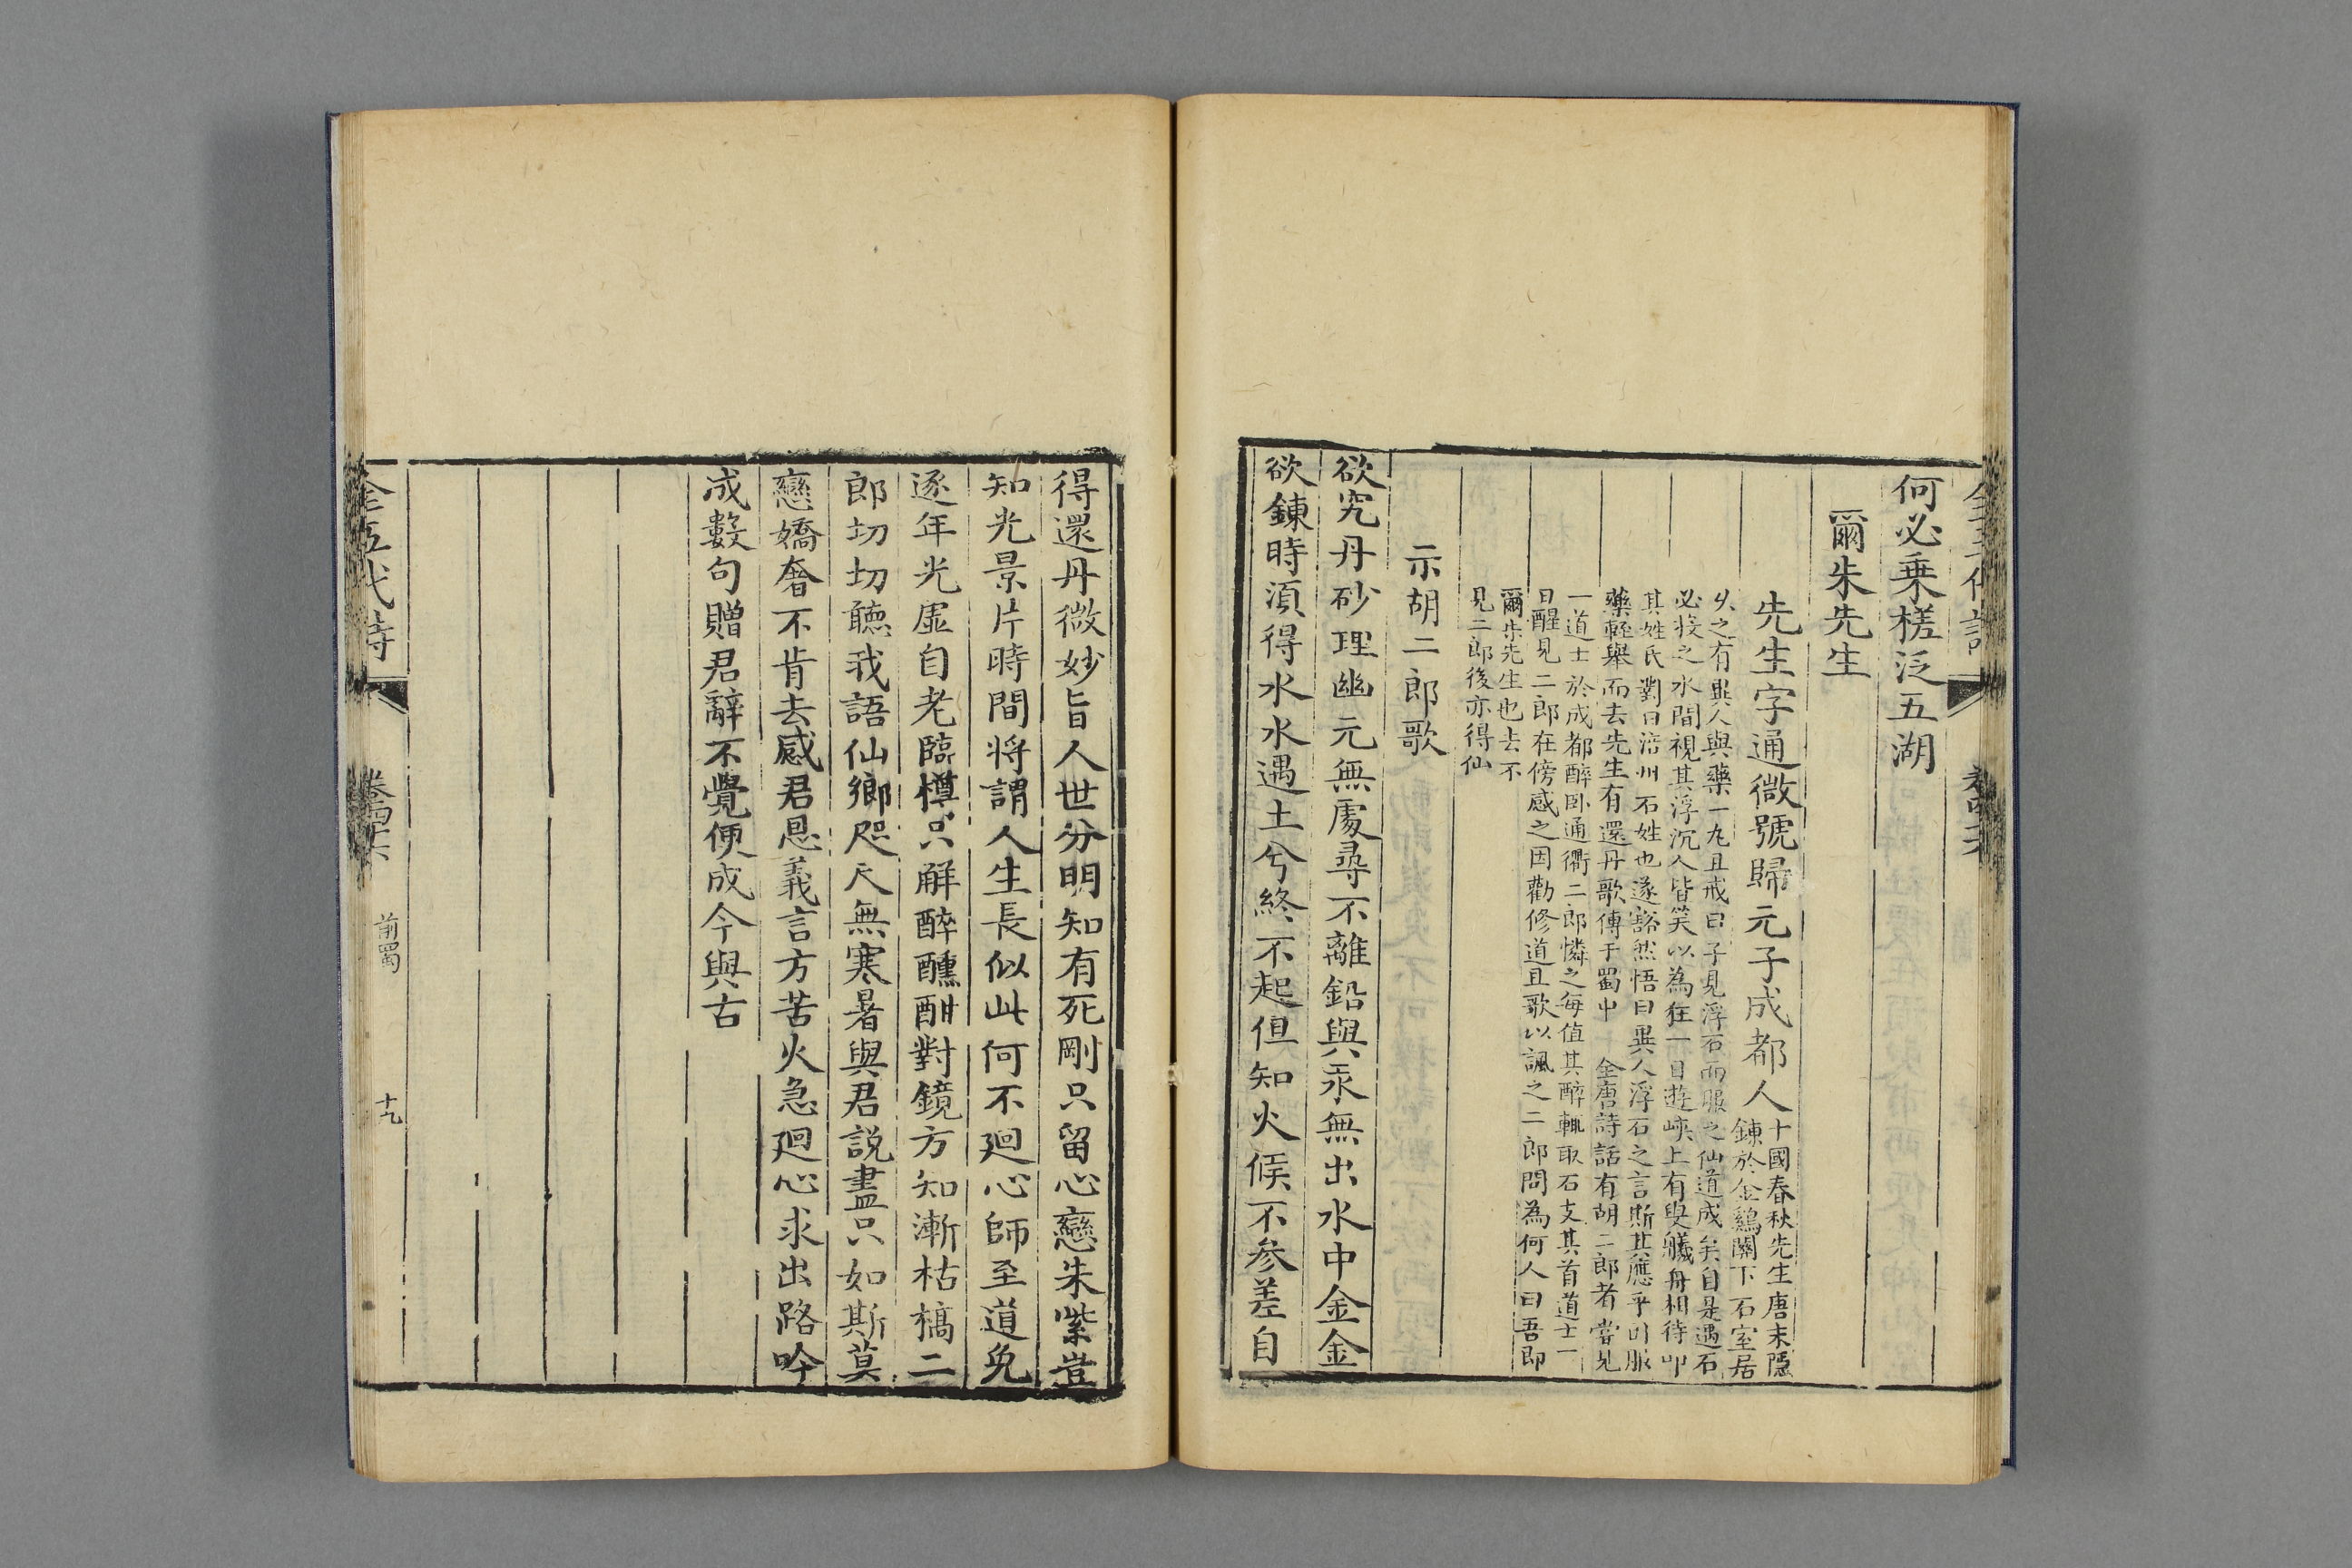 何必乗槎泛五湖
爾朱先生
先生字通微號歸元子成都人
十國春秋先生唐末隱
鍊於金鷄關下石室居
久之有異人與藥一丸且戒曰子見浮石而服之仙道成矣自是遇石
必投之水間視其浮沉人皆笑以為狂一日遊峡上有叟艤舟相待叩
其姓氏對曰涪州石姓也遂豁然悟曰異人浮石之言斯其應乎以服
藥輕舉而去先生有還丹歌傳于蜀中 全唐詩話有胡二郎者嘗見
一道士於成都醉卧通衢二郎憐之每值其醉輒取石支其首道士一
日醒見二郎在傍感之因勸修道且歌以諷之二郎問為何人曰吾即
爾朱先生也去不
見二郎後亦得仙
示胡二郎歌
欲究丹砂理幽元無處尋不離鉛與汞無出水中金金
欲鍊時須得水水遇土兮終不起但知火候不参差自
得還丹微妙旨人世分明知有死剛只留心戀朱紫豈
知光景片時間将謂人生長似此何不廻心師至道免
逐年光虛自老臨樽只解醉醺酣對鏡方知漸枯槁二
郎切切聽我語仙鄉咫尺無寒暑與君説盡只如斯莫
戀嬌奢不肯去感君恩義言方苦火急廻心求出路吟
成數句贈君辭不覺便成今與古
全五代詩
卷四六
前蜀
十九